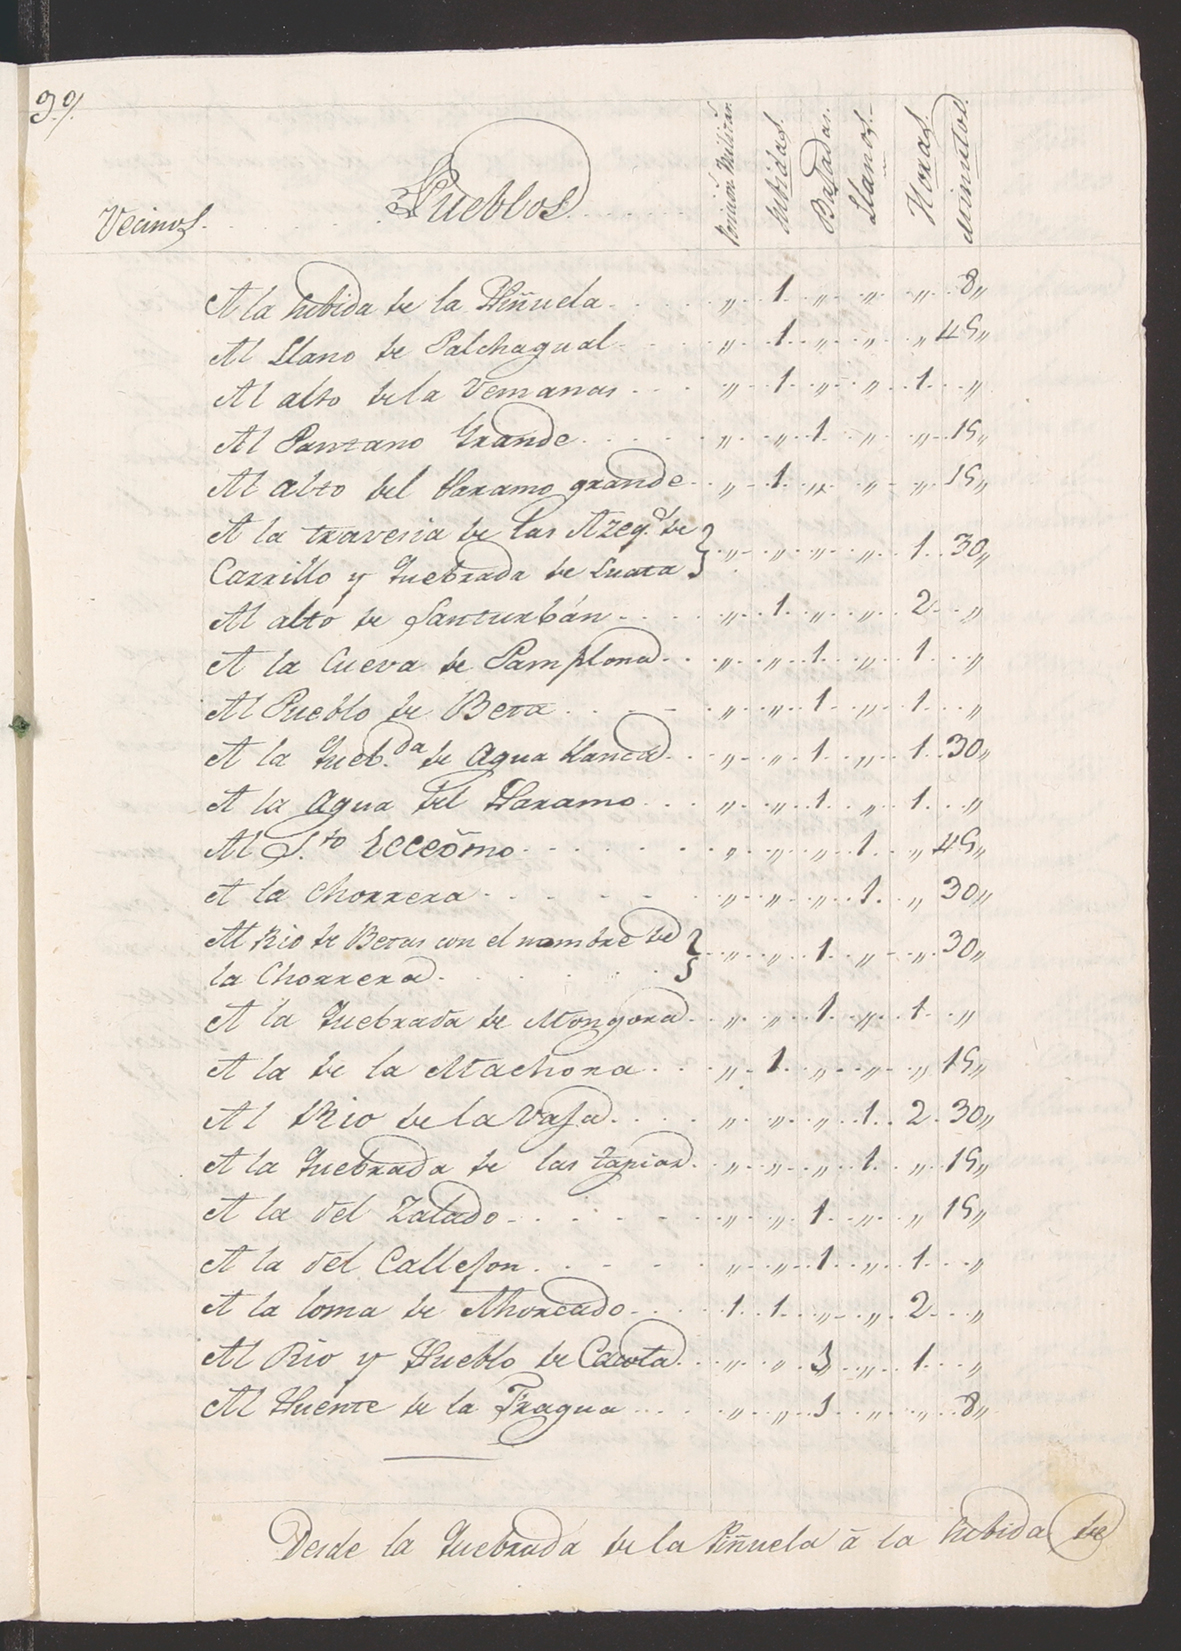 39.
Vecinos. Pueblos. Posicion Militar. Subidas. Bajadas. Llanos. Horas. minutos.
A la Subida de la Piñuela. „ 1 „ „ „ 8„
Al Llano de Palchagual. „ 1 „ „ „ 45„
Al alto de la Vemanas. „ 1 „ „ 1 „
Al Pantano Grande. „ „ 1 „ „ 15„
Al alto del Paramo grande. „ 1 „ „ „ 15„
A la travesia de las Azeq.s de
Carrillo y Quebrada de Suata „ „ „ „ 1 30„
Al alto de Santurbán. „ 1 „ „ 2 „
A la Cueva de Pamplona. „ „ 1 „ 1 „
Al Pueblo de Beta. „ „ 1 „ 1 „
A la Queb.da de Agua blanca. „ „ 1 „ 1 30„
A la Agua del Paramo. „ „ 1 „ 1 „
Al S.to Ecceŏmo. „ „ „ 1 „ 45„
A la Chorrera. „ „ „ 1 „ 30„
Al Rio de Betas con el nombre de
la Chorrera. „ „ 1 „ „ 30„
A la Quebrada de Mongora. „ „ 1 „ 1 „
A la de la Machona. „ 1 „ „ „ 15„
Al Rio de la Vaja. „ „ „ 1 2 30„
A la Quebrada de las tapias. „ „ „ 1 „ 15„
A la del Zalado. „ „ 1 „ „ 15„
A la del Callejon. „ „ 1 „ 1 „
A la loma de Ahorcado. 1 1 „ „ 2 „
Al Rio y Pueblo de Cacota. „ „ 1 „ 1 „
Al Puente de la Fragua. „ „ 1 „ „ 8„
Desde la Quebrada de la Piñuela ā la Subida de